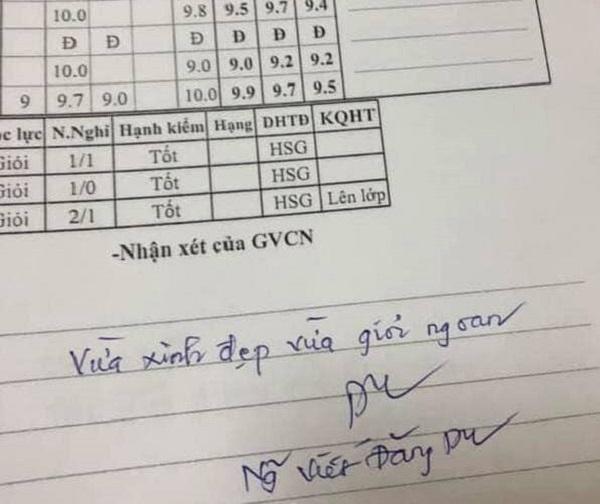 10.0 9.8 9.5 9.7 9.4
Đ Đ Đ Đ Đ Đ
10.0 9.0 9.0 9.2 9.2
9 9.7 9.0 10.0 9.9 9.7 9.5
c lực N.Nghỉ Hạnh kiểm Hạng DHTĐ KQHT
Giỏi 1/1 Tốt HSG
Giỏi 1/0 Tốt HSG
Giỏi 2/1 Tốt HSG Lên lớp
-Nhận xét của GVCN
Vừa xinh đẹp vừa giỏi ngoan
Du
Ng Viết Đăng Du